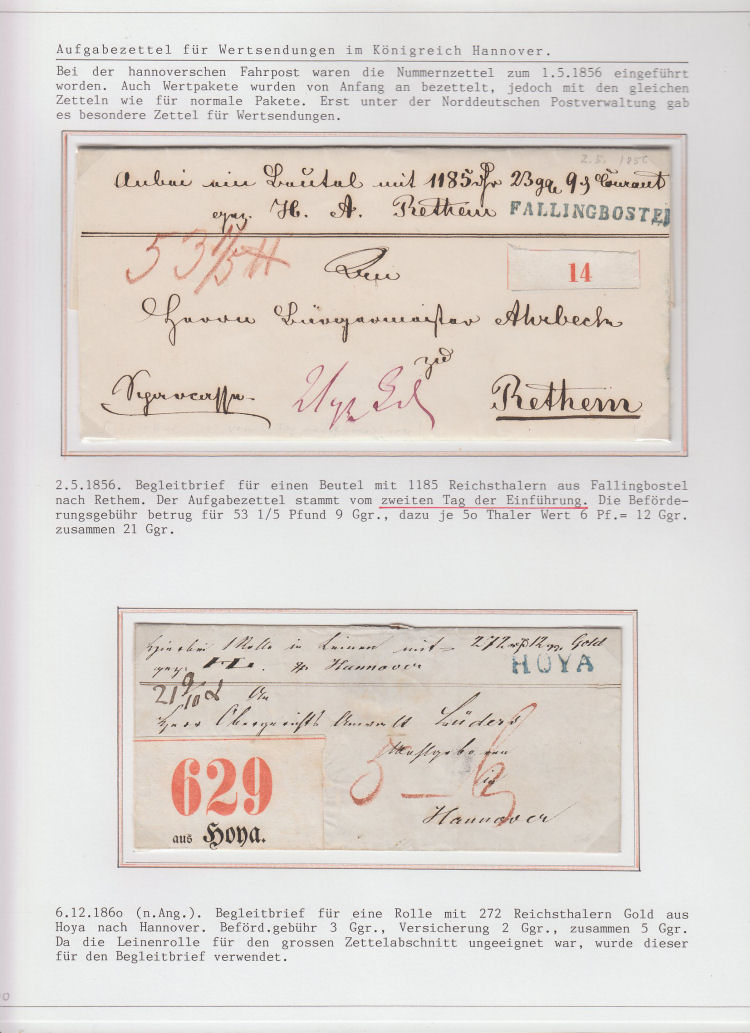 Aufgabezettel für Wertsendungen im Königreich Hannover.
Bei der hannoverschen Fahrpost waren die Nummernzettel zum 1.5.1856 eingeführt
worden. Auch Wertpakete wurden von Anfang an bezettelt, jedoch mit den gleichen
Zetteln wie für normale Pakete. Erst unter der Norddeutschen Postverwaltung gab
es besondere Zettel für Wertsendungen.
2.5. 1856
Anbei ein Beutel mit 1185 23 9 Courant
gez. H. A. Rethem FALLINGBOSTEL
53 1/5
14
Dem
Herrn Bürgermeister Ahrbeck
zu
Rethem
2.5.1856. Begleitbrief für einen Beutel mit 1185 Reichsthalern aus Fallingbostel
nach Rethem. Der Aufgabezettel stammt vom zweiten Tag der Einführung. Die Beförde-
rungsgebühr betrug für 53 1/5 Pfund 9 Ggr., dazu je 5o Thaler Wert 6 Pf.= 12 Ggr.
zusammen 21 Ggr.
Hierbei 1 Rolle in Leinen mit 272 12 Gold
gez. Hannover HOYA
21 9/10 An
Herr Obergerichts Anwalt Lüders
Wohlgeboren
in
Hannover
629
aus Hoya.
6.12.186o (n.Ang.). Begleitbrief für eine Rolle mit 272 Reichsthalern Gold aus
Hoya nach Hannover. Beförd.gebühr 3 Ggr., Versicherung 2 Ggr., zusammen 5 Ggr.
Da die Leinenrolle für den grossen Zettelabschnitt ungeeignet war, wurde dieser
für den Begleitbrief verwendet.